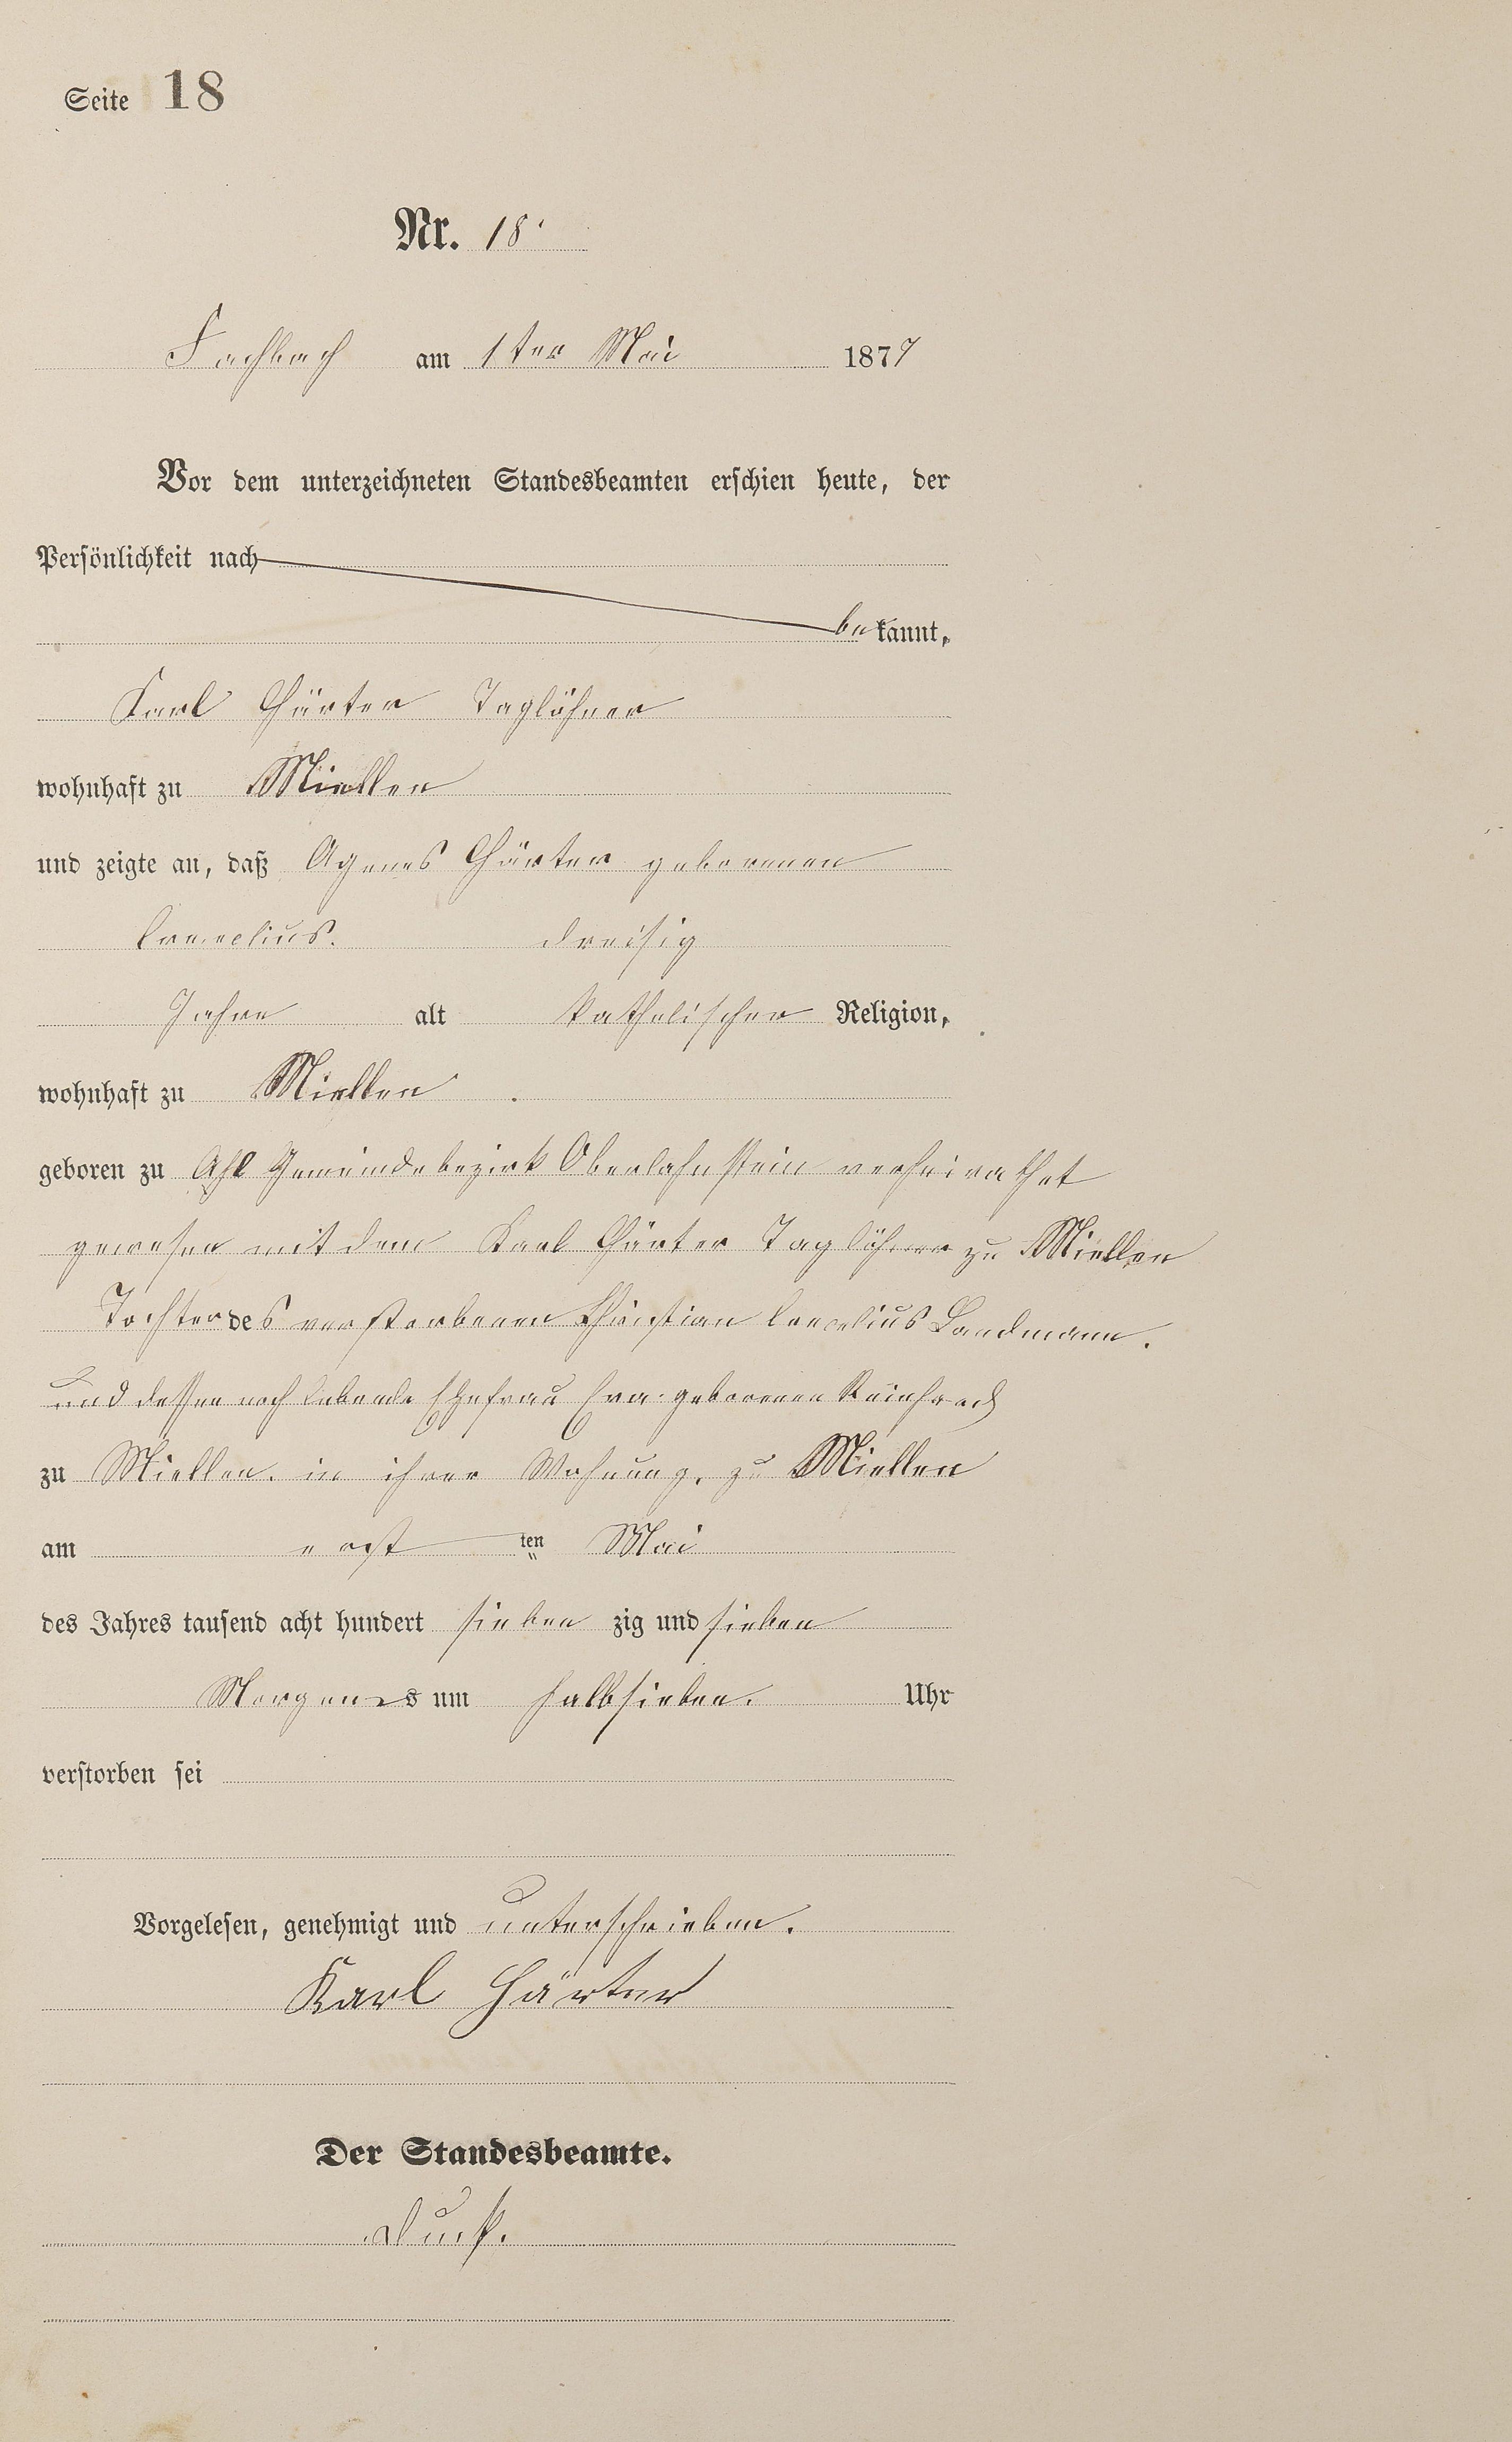 Seite 18
Nr. 18.
Fachbach am 1ter Mai 1877
Vor dem unterzeichneten Standesbeamten erschien heute, der
Persönlichkeit nach
bekannt,
Karl Gärter Taglöhner
wohnhaft zu Miellen
und zeigte an, daß Agenes Gärter geborenen
Cornelius. dreisig
Jahre alt katholischer Religion,
wohnhaft zu Miellen
geboren zu Ahl Gemeindebezirk Oberlahnstein verheirathet
gewesen mit dem Karl Gärter Taglöhner zu Miellen
Tochter des verstorbenen Christian Cornelius Landmann.
und dessen noch lebende Ehefrau Eva geborenen
zu Miellen. in ihrer Wohnung. zu Miellen
am erst ten Mai
des Jahres tausend acht hundert sieben zig und sieben
Morgenes um halbsieben. Uhr
verstorben sei
Vorgelesen, genehmigt und unterschrieben.
Karl Härter
Der Standesbeamte.